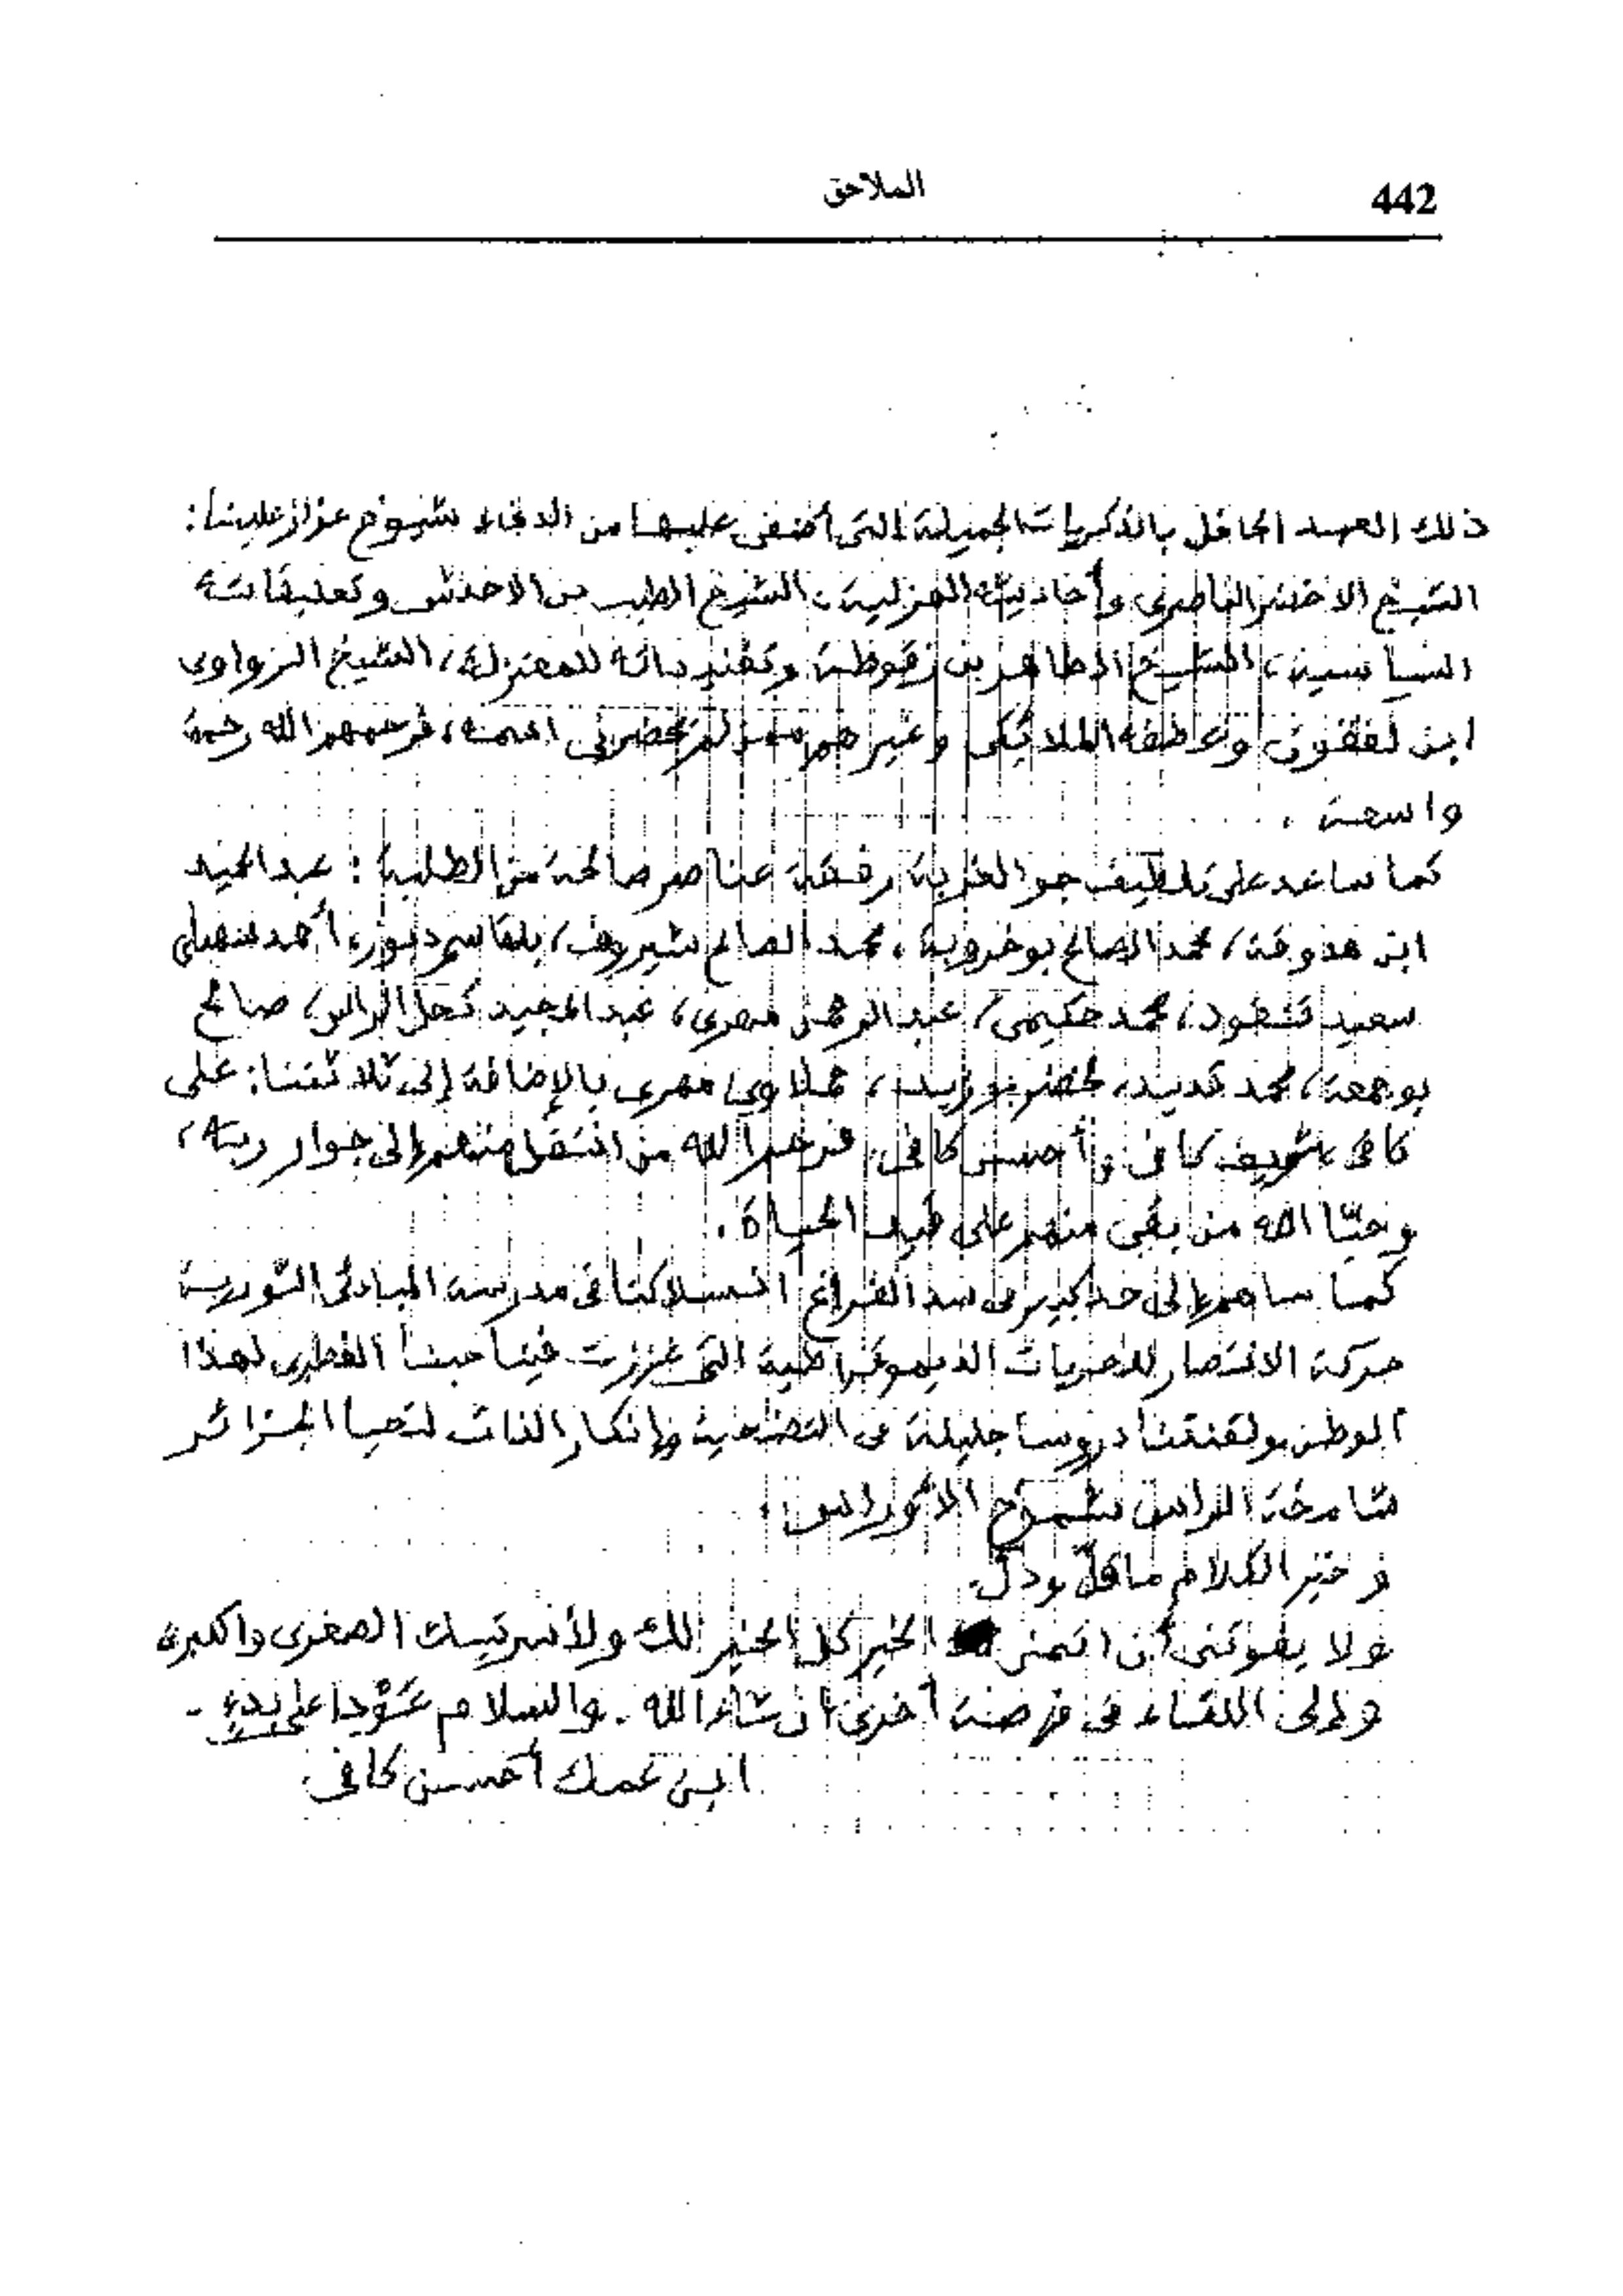 442
الملاحق
ذلك العهد الحافل بالذكريات الجميلة التي أضفى عليها من الدفء شيوخ عزاز علينا:
الشيخ الاخضر الناصري وأحاديثه الهزلية، الشيخ الطيب بن الاخذش وتعليقاته
السياسية، الشيخ الطاهر بن زقوطة للمعتزلة، الشيخ الزواوي
ابن لفقون وعطفه الملائكي وغيرهم ممن لم تحضرني اسمه، فرحمهم الله رحمة
واسعة.
كما ساعد على تلطيف جو الغربة رفقة عناصر صالحة من الطلبة: عبد الحميد
ابن هدوقة، محمد الصالح بوخروبة، محمد الصالح شيروف، بلقاسم أحمد
سعيد محمد حكيمي، عبد الرحمن مهري، عبد المجيد كحل الراس، صالح
بوجمعة، محمد كديد، لخضر بوزيد، حملاوي مهري بالإضافة إلى ثلاثتنا: علي
كافي، شريف كافي وأحسن كافي، فرحم الله من انتقل منهم إلى جوار ربه،
وحيّا الله من بقي منهم على قيد الحياة.
كما ساهم إلى حد كبير في سد الفراغ انسلاكنا في مدرسة المبادئ الثورية
حركة الانتصار للحريات الديموقراطية التي عززت فينا حبنا الفطري لهذا
الوطن ولقنتنا دروسا جليلة في التضحية وإنكار الذات لتحيا الجزائر
شامخة الراس شموخ الأوراس.
وخير الكلام ما قلّ ودلّ.
ولا يفوتني أن اتمنى الخير كل الخير لك ولأسرتيك الصغرى والكبرى
وإلى اللقاء في فرصة أخرى ان شاء الله. والسلام عَوْدا على بدء.
ابن عمك أحسن كافي